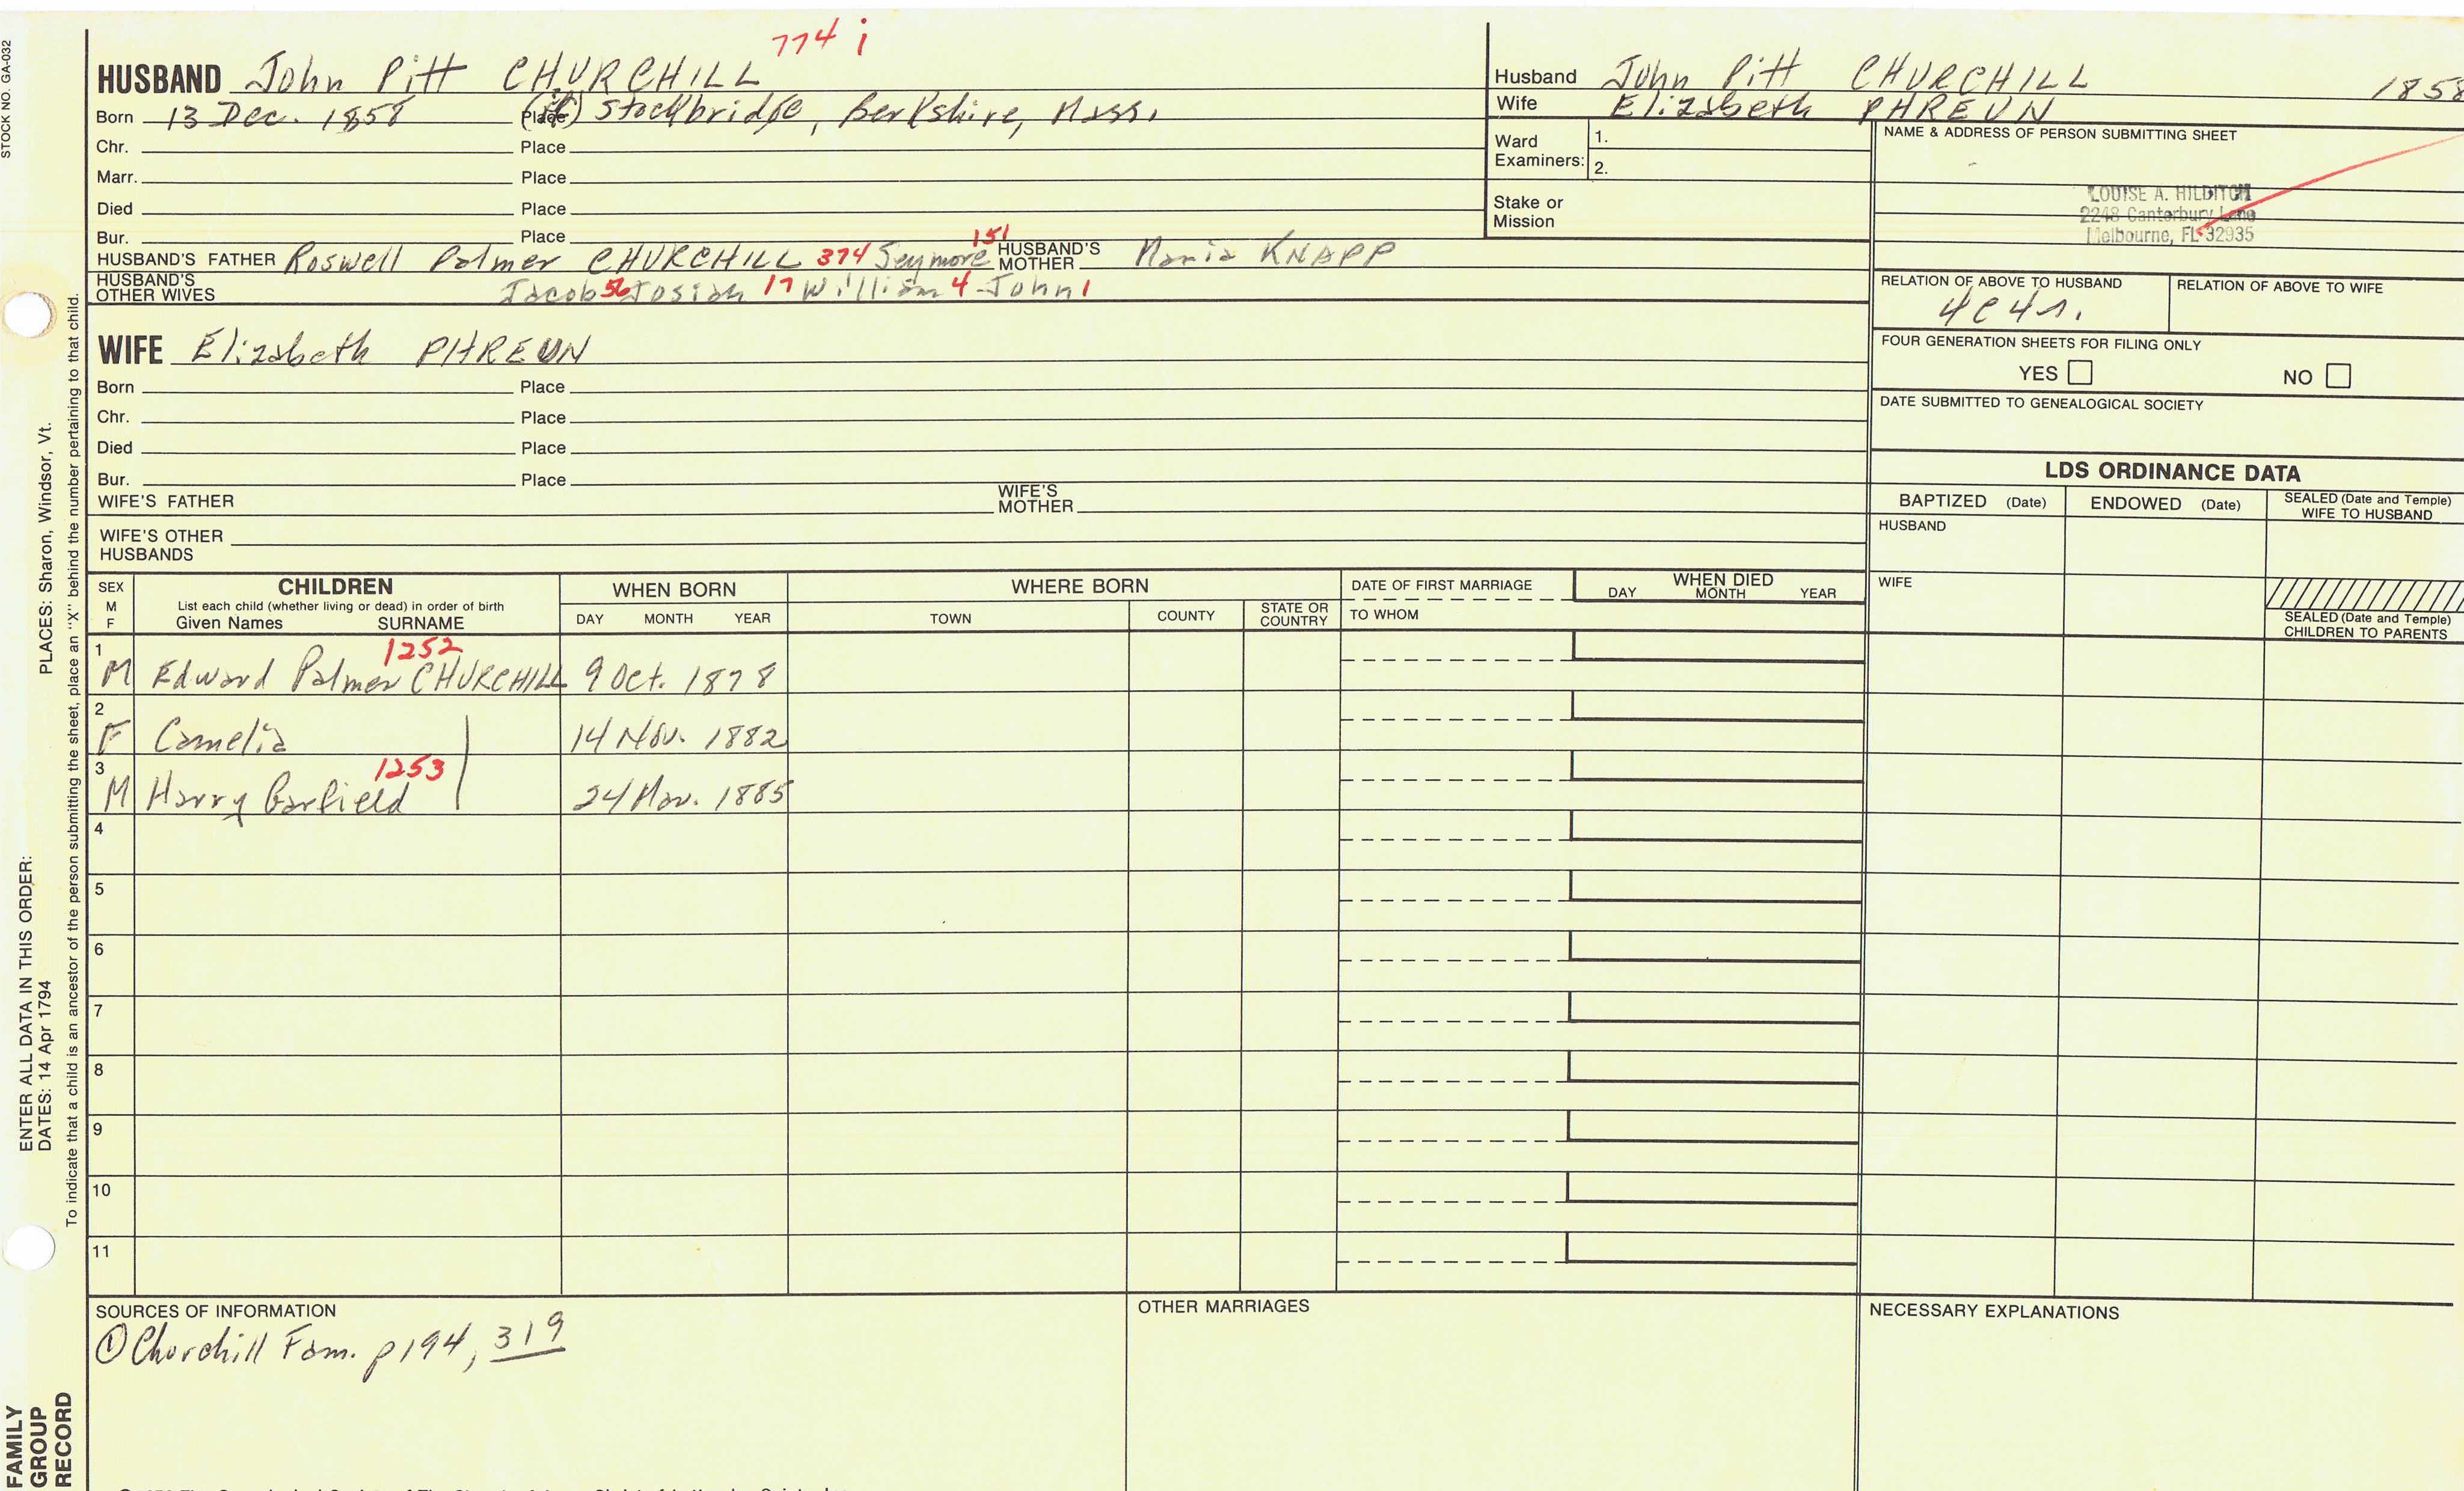 STOCK NO. GA-032
774 i
HUSBAND John Pitt CHURCHILL
Born 13 Dec. 1858 Place Stockbridge, Berkshire, Mass.
Chr. Place
Marr. Place
Died Place
Bur. Place
HUSBAND'S FATHER Roswell Palmer CHURCHILL 374 Seymore 151 HUSBAND'S MOTHER Maria KNAPP
HUSBAND'S OTHER WIVES Jacob 56 Josiah 17 William 4 John 1
WIFE Elizabeth PHREUN
Born Place
Chr. Place
Died Place
Bur. Place
WIFE'S FATHER WIFE'S MOTHER
WIFE'S OTHER HUSBANDS
Husband John Pitt CHURCHILL 1858
Wife Elizabeth PHREUN
Ward Examiners: 1.
2.
Stake or Mission
NAME & ADDRESS OF PERSON SUBMITTING SHEET
LOUISE A. HILDITCH
2248 Canterbury Lane
Melbourne, FL 32935
RELATION OF ABOVE TO HUSBAND RELATION OF ABOVE TO WIFE
4C4r.
FOUR GENERATION SHEETS FOR FILING ONLY
YES NO
DATE SUBMITTED TO GENEALOGICAL SOCIETY
LDS ORDINANCE DATA
BAPTIZED (Date) ENDOWED (Date) SEALED (Date and Temple) WIFE TO HUSBAND
HUSBAND
WIFE
SEALED (Date and Temple) CHILDREN TO PARENTS
SEX M F CHILDREN WHEN BORN WHERE BORN DATE OF FIRST MARRIAGE WHEN DIED
List each child (whether living or dead) in order of birth
Given Names SURNAME DAY MONTH YEAR TOWN COUNTY STATE OR COUNTRY TO WHOM DAY MONTH YEAR
1 M Edward Palmer CHURCHILL 1252 9 Oct. 1878
2 F Camelia 14 Nov. 1882
3 M Harry Garfield 1253 24 Nov. 1885
4
5
6
7
8
9
10
11
SOURCES OF INFORMATION
① Churchill Fam. p194, 319
OTHER MARRIAGES
NECESSARY EXPLANATIONS
ENTER ALL DATA IN THIS ORDER:
DATES: 14 Apr 1794 PLACES: Sharon, Windsor, Vt.
To indicate that a child is an ancestor of the person submitting the sheet, place an "X" behind the number pertaining to that child.
FAMILY
GROUP
RECORD